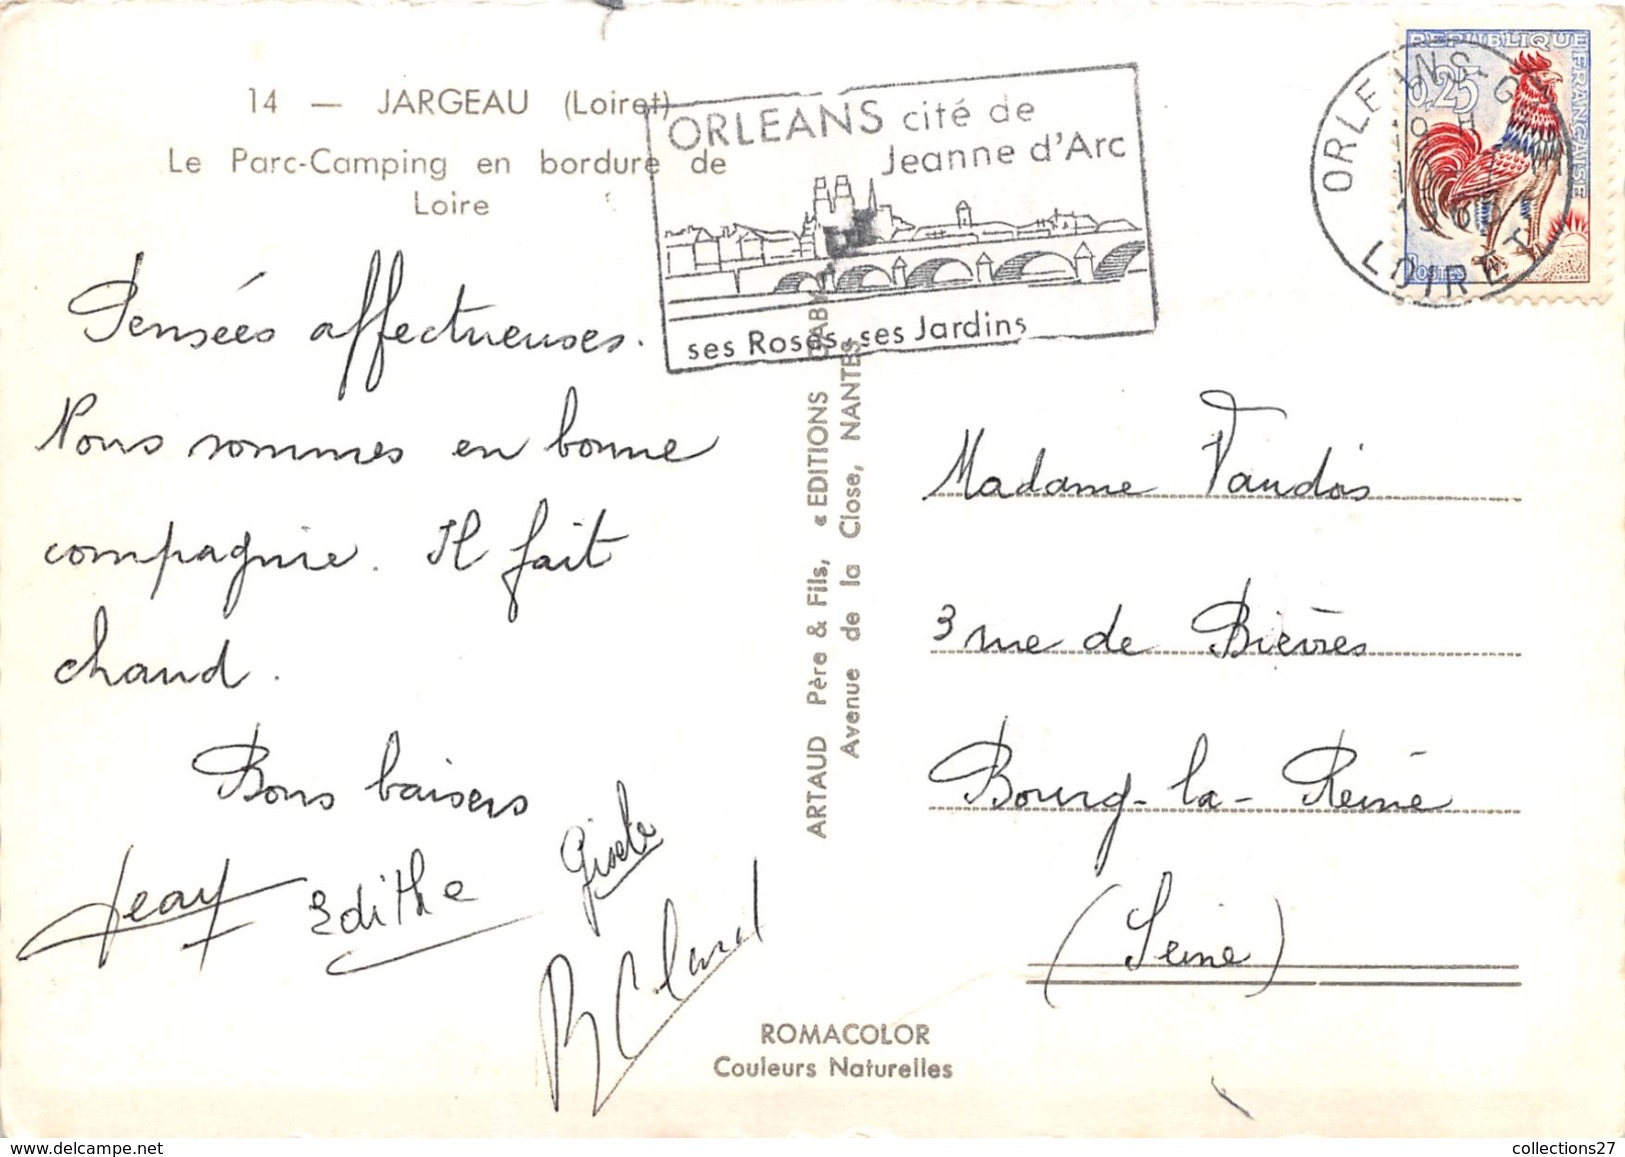 14 — JARGEAU (Loiret)
Le Parc-Camping en bordure de
Loire
ORLEANS cité de
Jeanne d'Arc
ses Roses, ses Jardins
ORLEANS-G
LOIRET
REPUBLIQUE FRANÇAISE
0,25
POSTES
Pensées affectueuses.
Nous sommes en bonne
compagnie. Il fait
chaud.
Bons baisers
Jean Edithe Gisèle
ARTAUD Père & Fils, « EDITIONS GABY »
Avenue de la Close, NANTES
Madame Vaudois
3 rue de Bièvres
Bourg-la-Reine
(Seine)
ROMACOLOR
Couleurs Naturelles
collections27